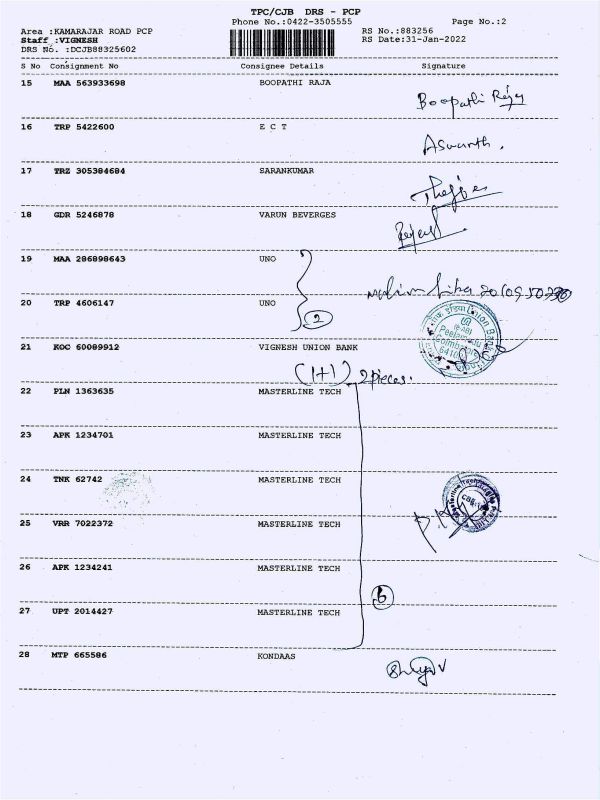 TPC/CJB DRS - PCP
Phone No.:0422-3505555 Page No.:2
Area :KAMARAJAR ROAD PCP RS No.:883256
Staff :VIGNESH RS Date:31-Jan-2022
DRS No. :DCJB88325602
S No Consignment No Consignee Details Signature
15 MAA 563933698 BOOPATHI RAJA
Boopathi Raja
16 TRP 5422600 E C T
Aswanth.
17 TRZ 305384684 SARANKUMAR
18 GDR 5246878 VARUN BEVERGES
19 MAA 286898643 UNO
20 TRP 4606147 UNO
2
21 KOC 60089912 VIGNESH UNION BANK
(1+1) 2pieces.
22 PLN 1363635 MASTERLINE TECH
23 APK 1234701 MASTERLINE TECH
24 TNK 62742 MASTERLINE TECH
25 VRR 7022372 MASTERLINE TECH
26 APK 1234241 MASTERLINE TECH
6
27 UPT 2014427 MASTERLINE TECH
28 MTP 665586 KONDAAS